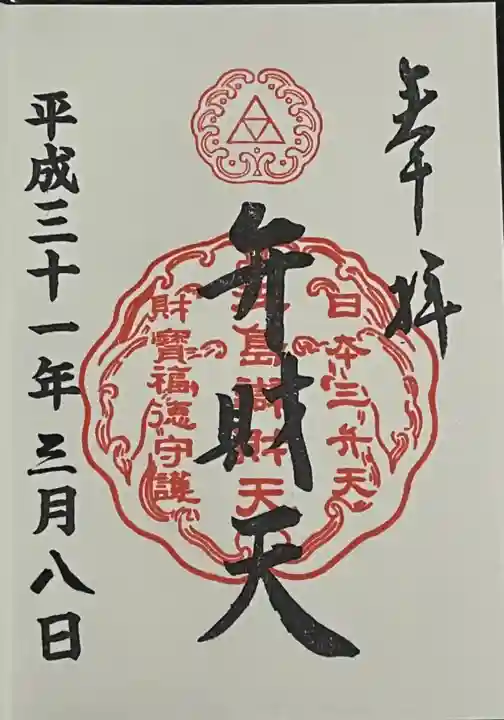 奉拝
日本三弁天
島
財天
弁財天
財寶福徳守護
平成三十一年三月八日